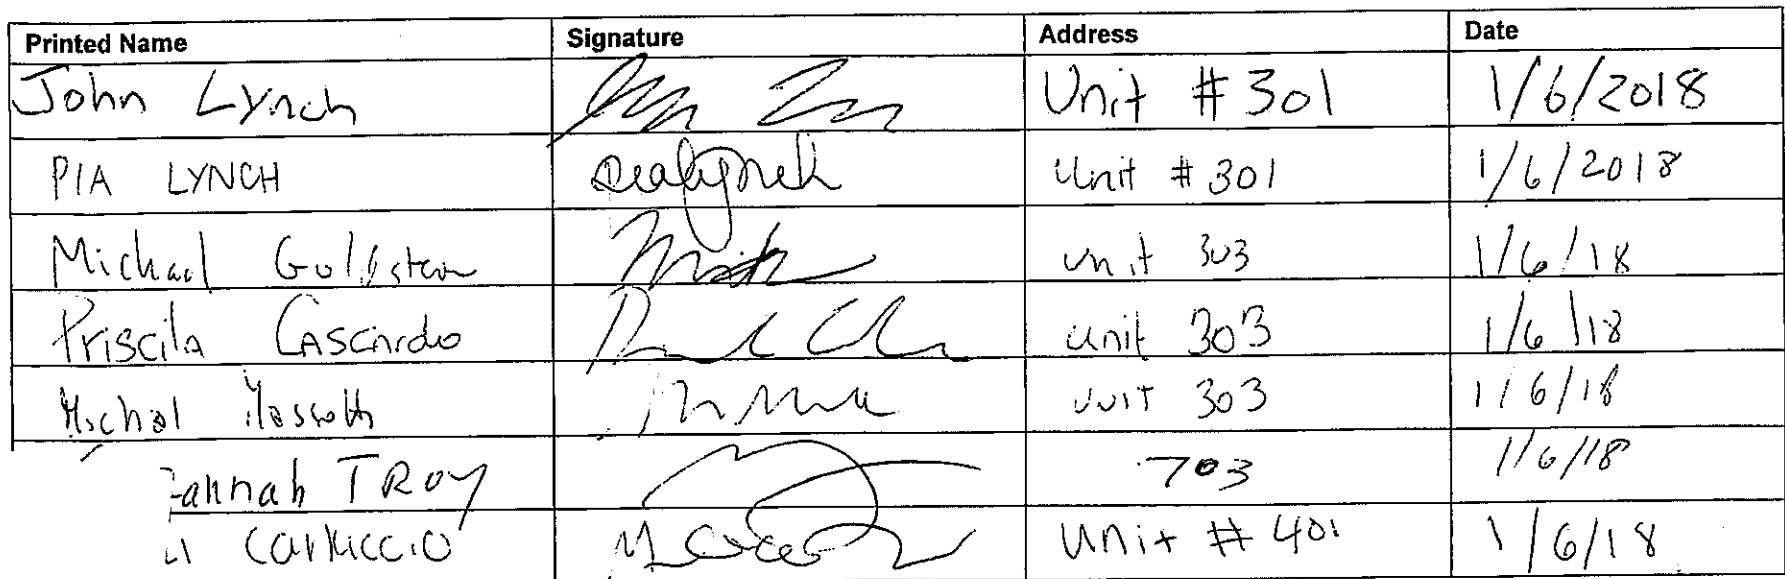 Printed Name Signature Address Date
John Lynch Unit #301 1/6/2018
PIA LYNCH Unit #301 1/6/2018
Michael unit 303 1/6/18
Priscila Cascardo unit 303 1/6/18
Michal unit 303 1/6/18
annah TROY 703 1/6/18
Carluccio Unit #401 1/6/18